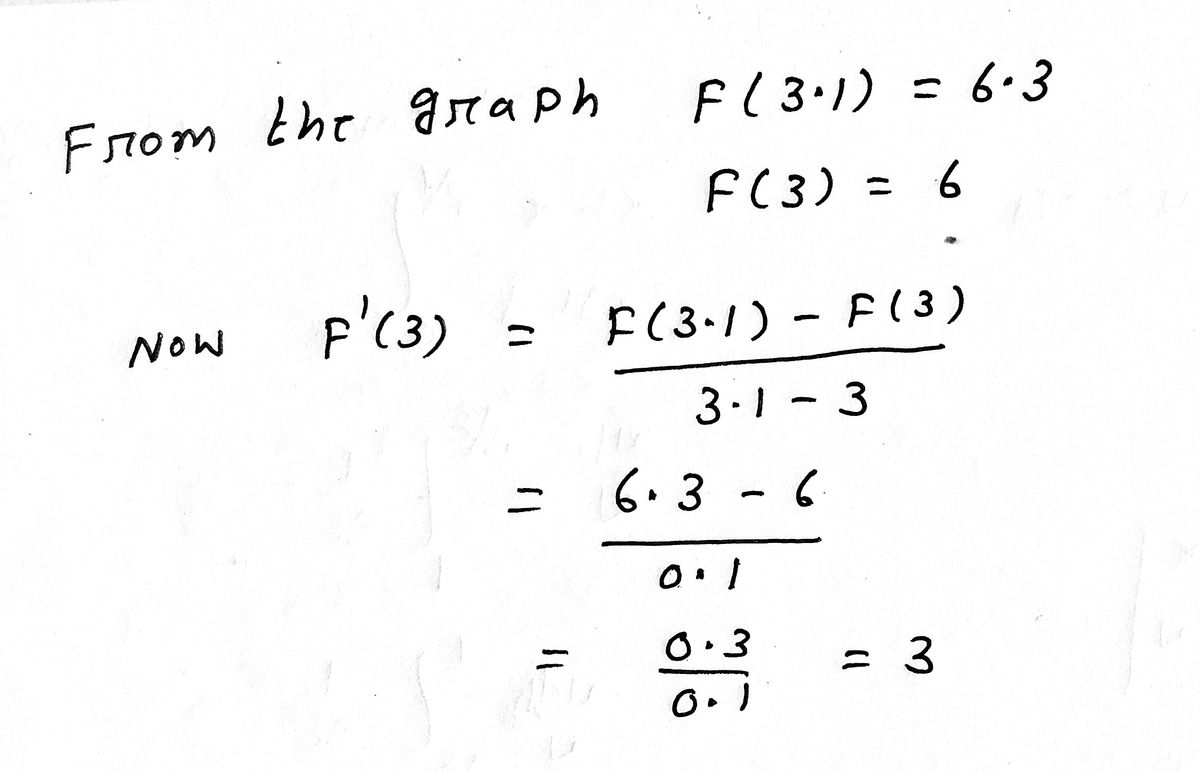 From the graph F(3·1) = 6·3
F(3) = 6
Now F'(3) = F(3·1) - F(3)
3·1 - 3
= 6·3 - 6
0·1
= 0·3 = 3
0·1